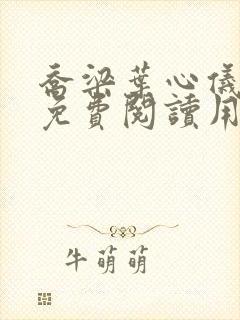 喬梁葉心儀
免費閱讀用
牛萌萌